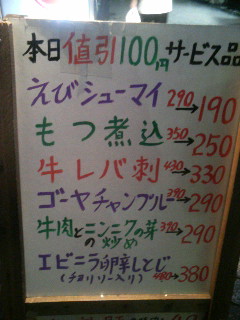 本日値引100円サービス品
えびシューマイ 290→190
もつ煮込 350→250
牛レバ刺 430→330
ゴーヤチャンプルー 390→290
牛肉とニンニクの芽の炒め 390→290
エビニラ卵辛しとじ
(チヨリソー入り) 480→380